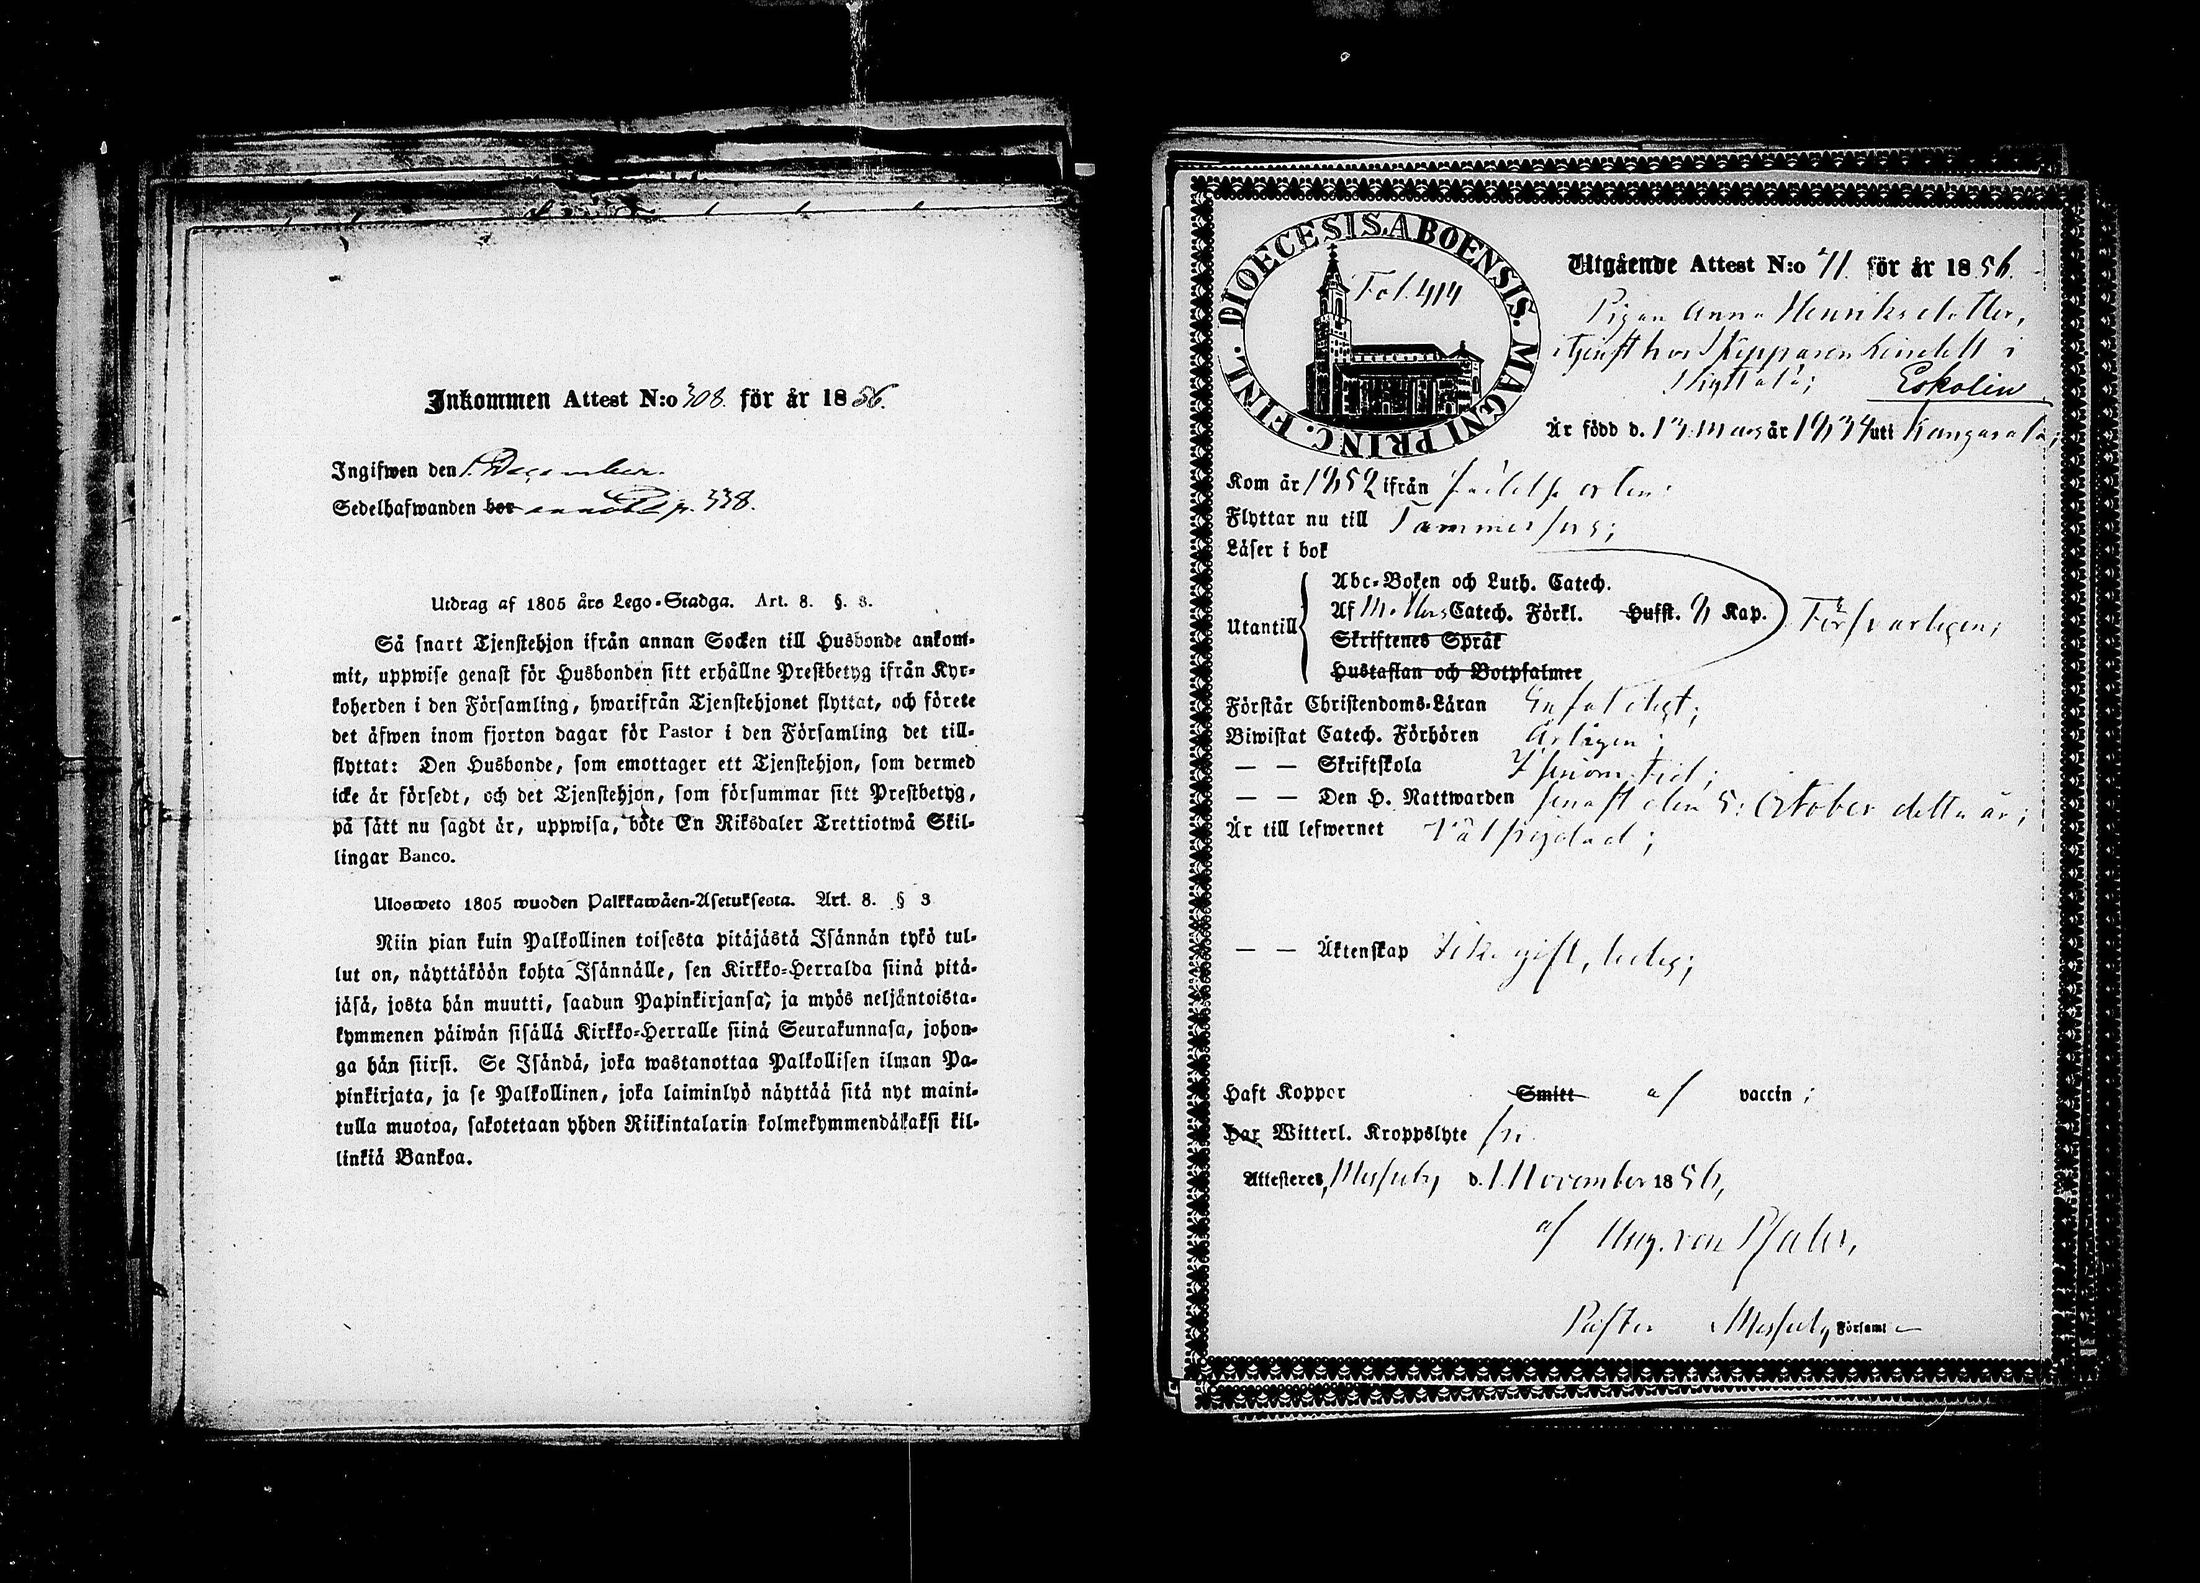 Inkommen Attest N:o 308. för år 1856.
Ingifwen den 1. December.
Sedelhafwanden bor annoteras p. 338.
Utdrag af 1805 års Lego-Stadga. Art. 8. §. 3.
Så snart Tjenstehjon ifrån annan Socken till Husbonde ankom-
mit, uppwise genast för Husbonden sitt erhållne Prestbetyg ifrån Kyr-
koherden i den Församling, hwarifrån Tjenstehjonet flyttat, och förete
det äfwen inom fjorton dagar för Pastor i den Församling det till-
flyttat: Den Husbonde, som emottager ett Tjenstehjon, som dermed
icke är försedt, och det Tjenstehjon, som försummar sitt Prestbetyg,
på sätt nu sagdt är, uppwisa, böte En Riksdaler Trettiotwå Skil-
lingar Banco.
Ulosweto 1805 wuoden Palkkawäen-Asetuksesta. Art. 8. § 3
Niin pian kuin Palkollinen toisesta pitäjästä Isännän tykö tul-
lut on, näyttäköön kohta Isännälle, sen Kirkko-Herralda siinä pitä-
jäsä, josta hän muutti, saadun Papinkirjansa; ja myös neljäntoista-
kymmenen päiwän sisällä Kirkko-Herralle siinä Seurakunnasa, johon-
ga hän siirsi. Se Isändä, joka wastanottaa Palkollisen ilman Pa-
pinkirjata, ja se Palkollinen, joka laiminlyö näyttää sitä nyt maini-
tulla muotoa, sakotetaan yhden Riikintalarin kolmekymmendäkaksi kil-
linkiä Bankoa.
DIOECESIS. ABOENSIS. MAGNI PRINC. FINL.
Fol. 414
Utgående Attest N:o 71. för år 1856.
Pigan Anna Henriksdotter,
i tjenst hos Skepparen Lindell i
Eskolin
Är född d. 13 Mars år 1834 uti Kangasala;
Kom år 1852 ifrån födelseorten;
Flyttar nu till Tammerfors;
Läser i bok
Utantill
Abc-Boken och Luth. Catech.
Af Möllers Catech. Förkl. Husst. 8 Kap.
Skriftenes Språk
Hustaflan och Botpsalmer
Försvarligen;
Förstår Christendoms-Läran Enfaldigt;
Biwistat Catech. Förhören Årligen;
— — Skriftskola I sinom tid;
— — Den H. Nattwarden senast den 5. October detta år;
Är till lefwernet Välfrejdad;
— — Äktenskap Icke gift, ledig;
Haft Koppor Smitt af vaccin;
Har Witterl. Kroppslyte fri.
Attesteres, Messuby d. 1. November 1856,
af Aug. von Pfaler,
Pastor i Messuby Församl